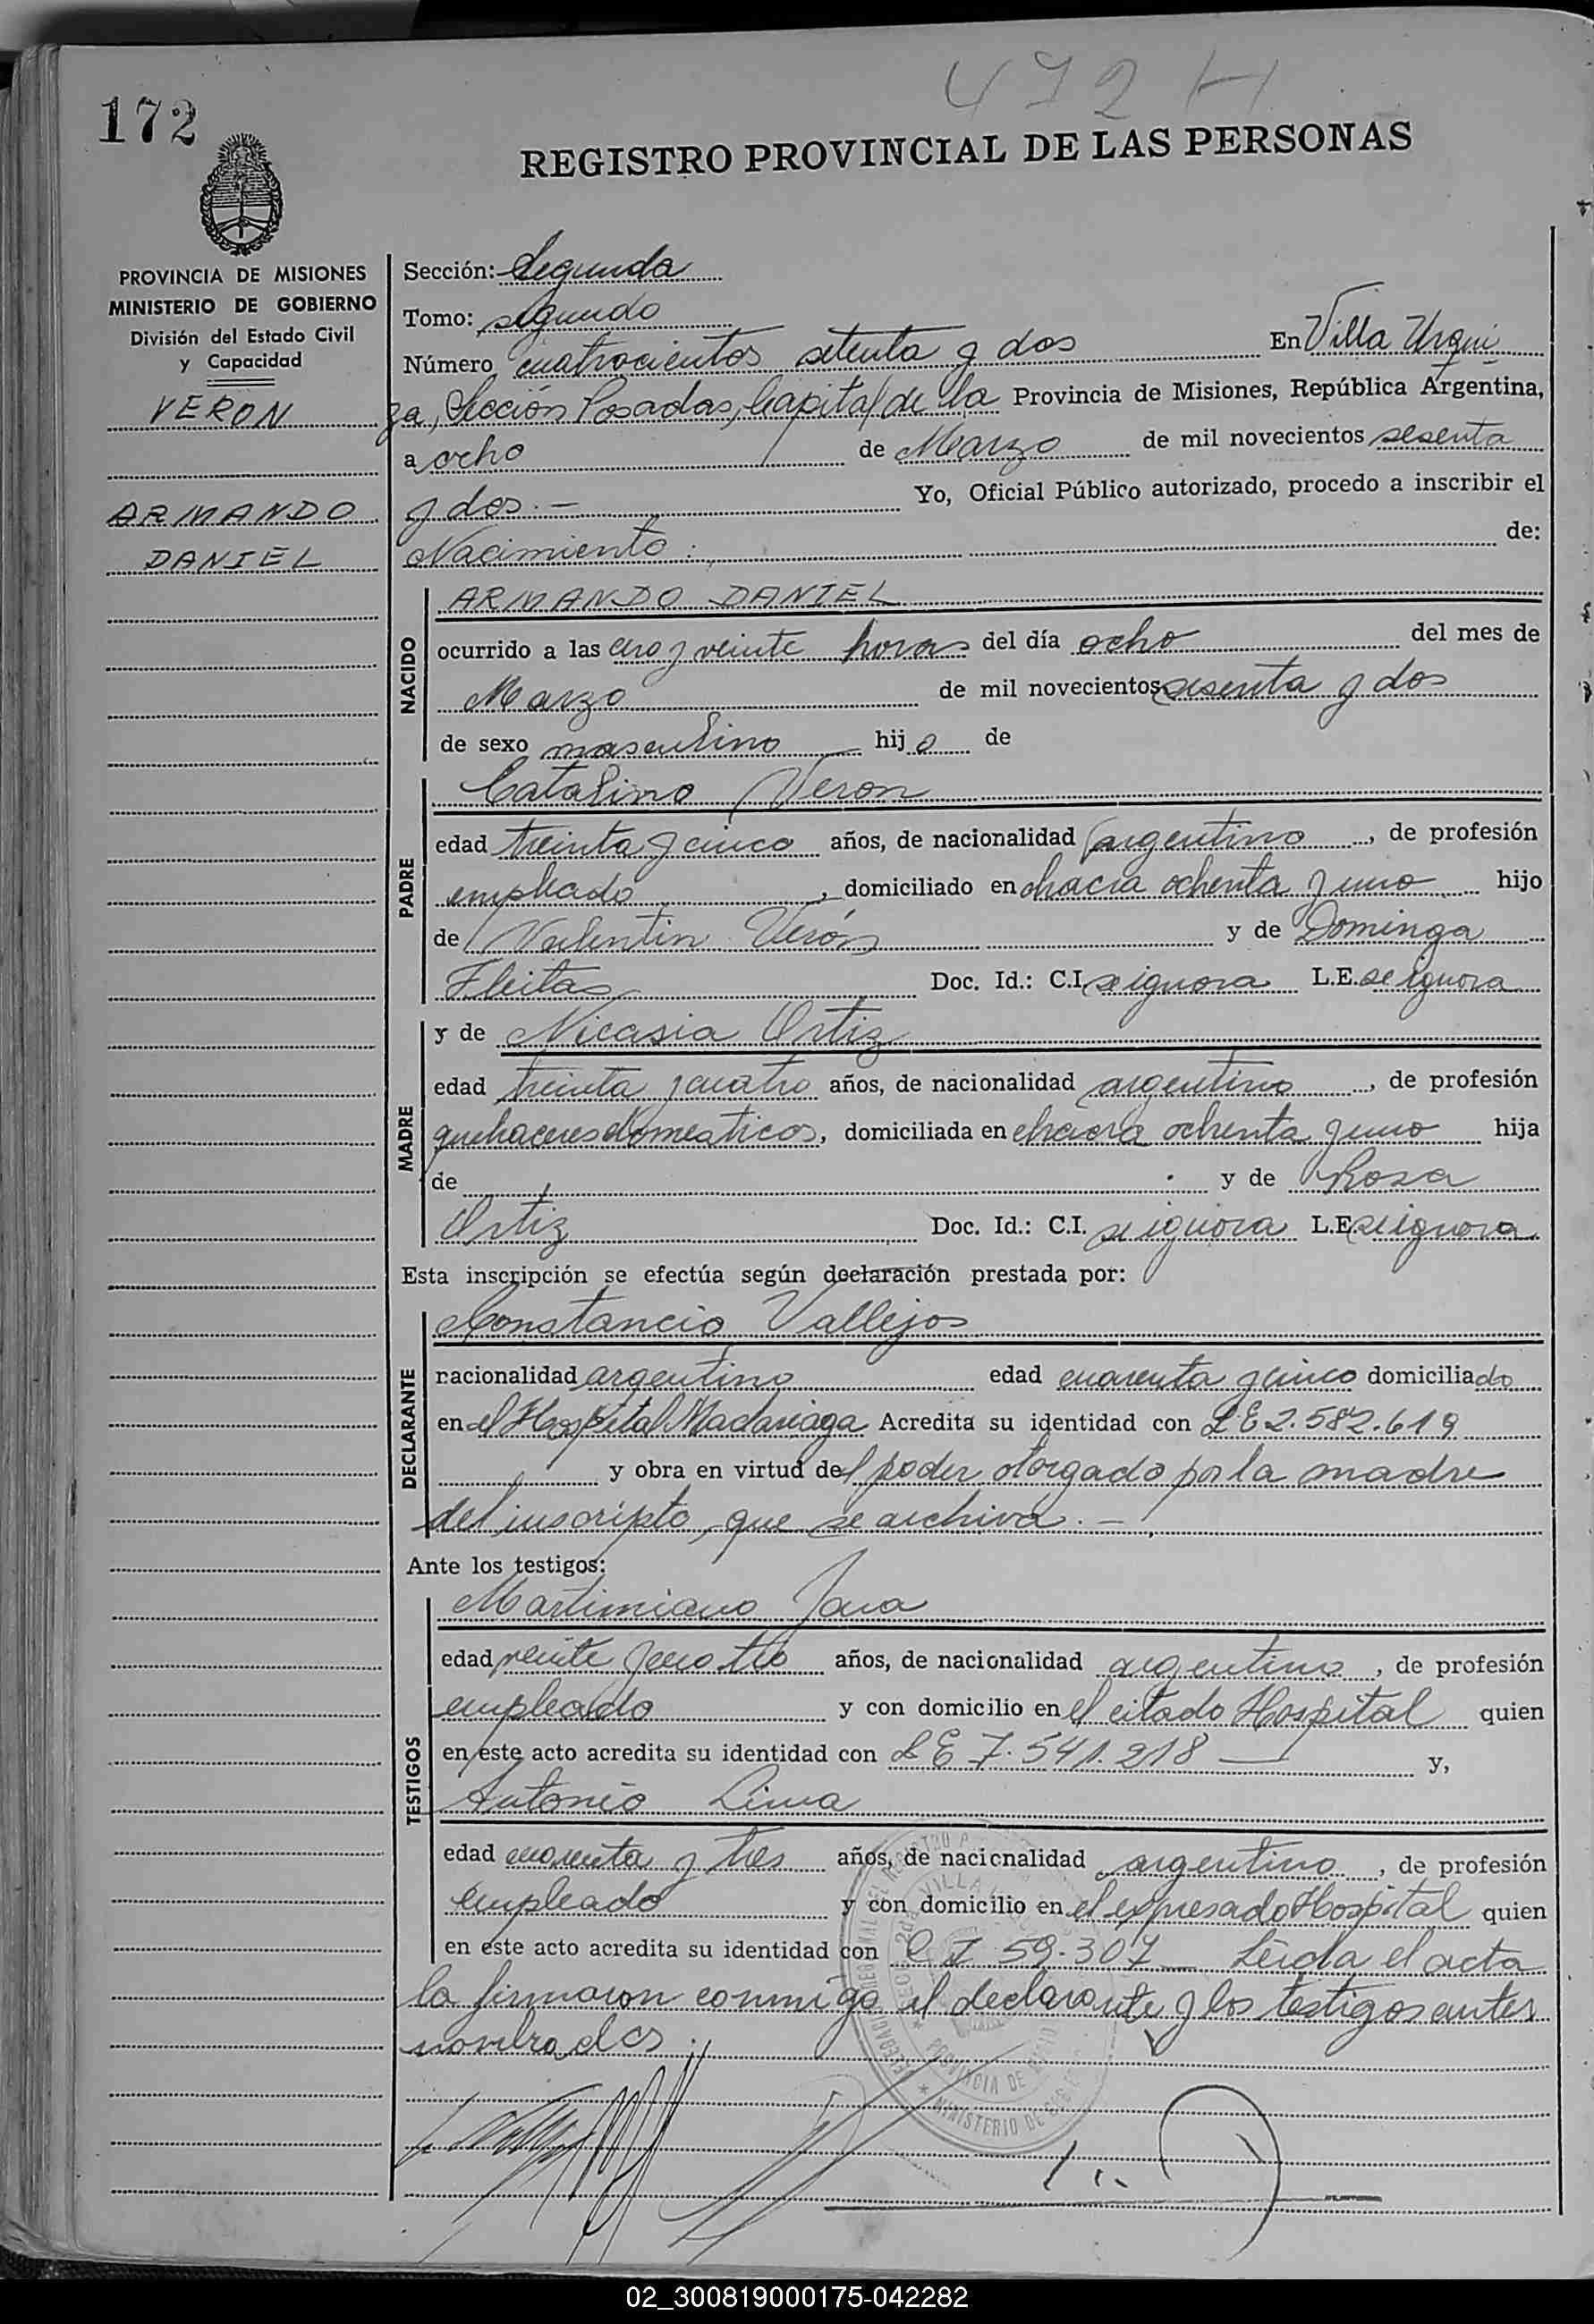 472 H
172
REGISTRO PROVINCIAL DE LAS PERSONAS
PROVINCIA DE MISIONES
MINISTERIO DE GOBIERNO
División del Estado Civil
y Capacidad
VERON
ARMANDO
DANIEL
Sección: Segunda
Tomo: segundo
Número cuatrocientos setenta y dos En Villa Urqui
za, Sección Posadas, Capital de la Provincia de Misiones, República Argentina,
a ocho de Marzo de mil novecientos sesenta
y dos.- Yo, Oficial Público autorizado, procedo a inscribir el
Nacimiento: de:
NACIDO
ARMANDO DANIEL
ocurrido a las cero y veinte horas del día ocho del mes de
Marzo de mil novecientos sesenta y dos
de sexo masculino hijo de
PADRE
Catalino Veron
edad treinta y cinco años, de nacionalidad argentino, de profesión
empleado, domiciliado en chacra ochenta y uno hijo
de Valentin Verón y de Dominga
Fleitas Doc. Id.: C.I. se ignora L.E. se ignora
MADRE
y de Nicasia Ortiz
edad treinta y cuatro años, de nacionalidad argentina, de profesión
quehaceres domesticos, domiciliada en chacra ochenta y uno hija
de y de Rosa
Ortiz Doc. Id.: C.I. se ignora L.E. se ignora
Esta inscripción se efectúa según declaración prestada por:
DECLARANTE
Constancio Vallejos
nacionalidad argentino edad cuarenta y cinco domiciliado
en el Hospital Madariaga Acredita su identidad con L E 2.582.619
y obra en virtud del poder otorgado por la madre
del inscripto, que se archiva.-
Ante los testigos:
TESTIGOS
Martimiano Jara
edad veinte y cuatro años, de nacionalidad argentino, de profesión
empleado y con domicilio en el citado Hospital quien
en este acto acredita su identidad con L E 7.541.218 y,
Antonio Lima
edad cuarenta y tres años, de nacionalidad argentino, de profesión
empleado y con domicilio en el expresado Hospital quien
en este acto acredita su identidad con C I 59.307 Leída el acta
la firmaron conmigo el declarante y los testigos antes
nombrados.
02_300819000175-042282